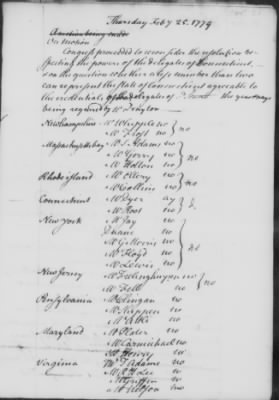 Thursday Feby 25. 1779
A motion being made
On motion
Congress proceeded to reconsider the resolution re-
specting the powers of the delegates of Connecticut,
& on the question whether a less number than two
can represent the state of Connecticut agreeable to
the credentials of the delegates of the yeas & nays
being required by Mr
Newhampshire Mr Whipple no } no
Mr no
Massachusetts bay Mr S. Adams no } no
Mr Gerry no
Mr Holten no
Rhode island Mr Ellery no } no
Mr Collins no
Connecticut Mr Dyer ay }
Mr Root no
New York Mr Jay no } no
Duane no
Mr G Morris no
Mr Floyd no
Mr Lewis no
New Jersey Mr Frelinghuysen no } no
Mr Fell no
Pensylvania Mr Clingan no
Mr no
Mr Atlee no
Maryland Mr Plater no
Mr Carmichael no
Mr Henry no
Virginia Mr T Adams no
Mr R H Lee no
Mr Griffin no
Mr no